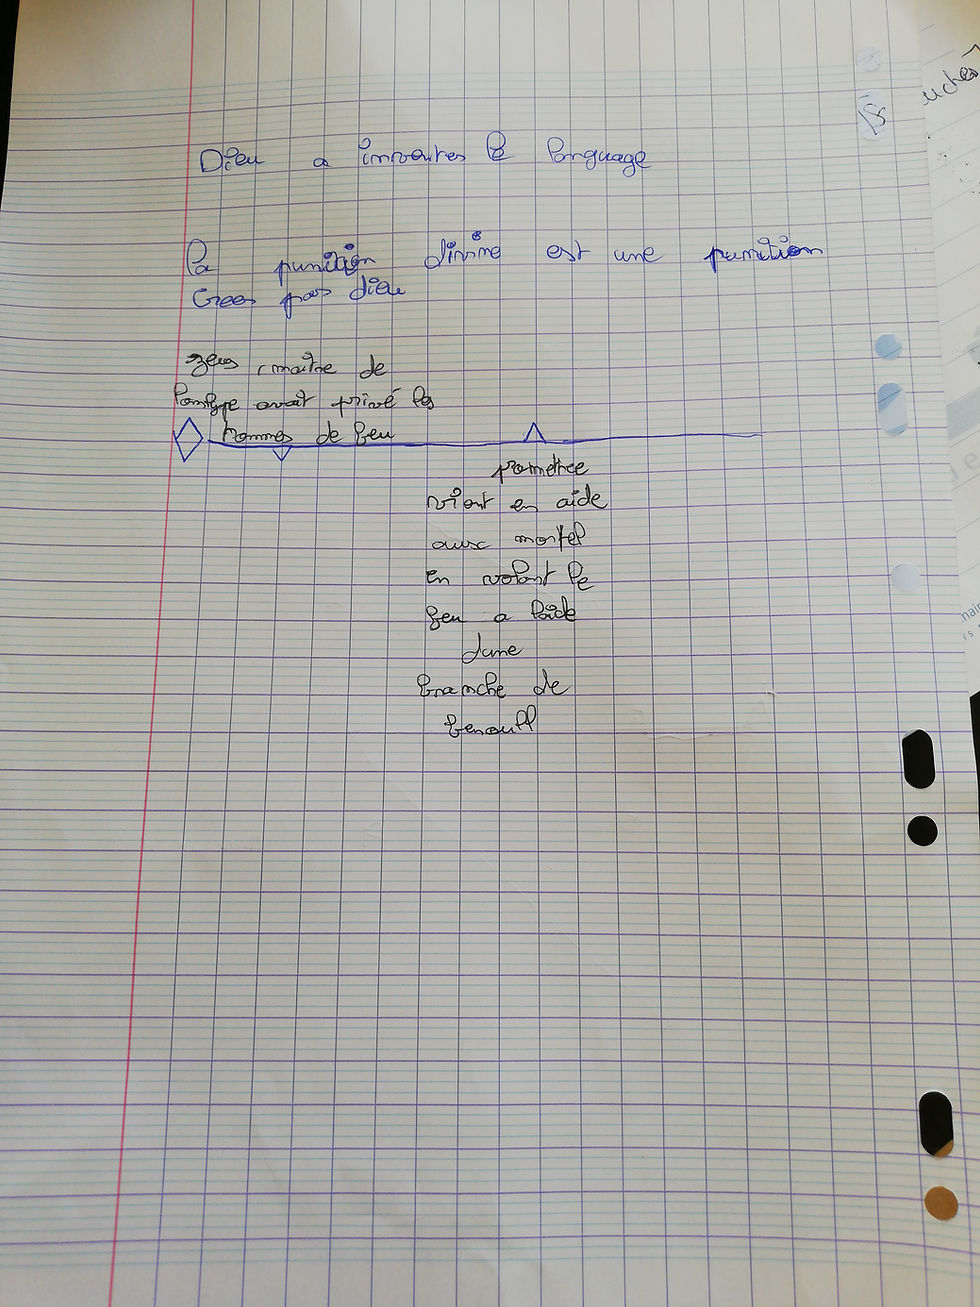 Dieu a inventes le language
la punition divine est une punition
Crees par dieu
zeus maitre de
avait privé les
hommes de feu
prométhée
vient en aide
aux mortel
en volant le
feu a l'aide
dune
branche de
fenouil
uches